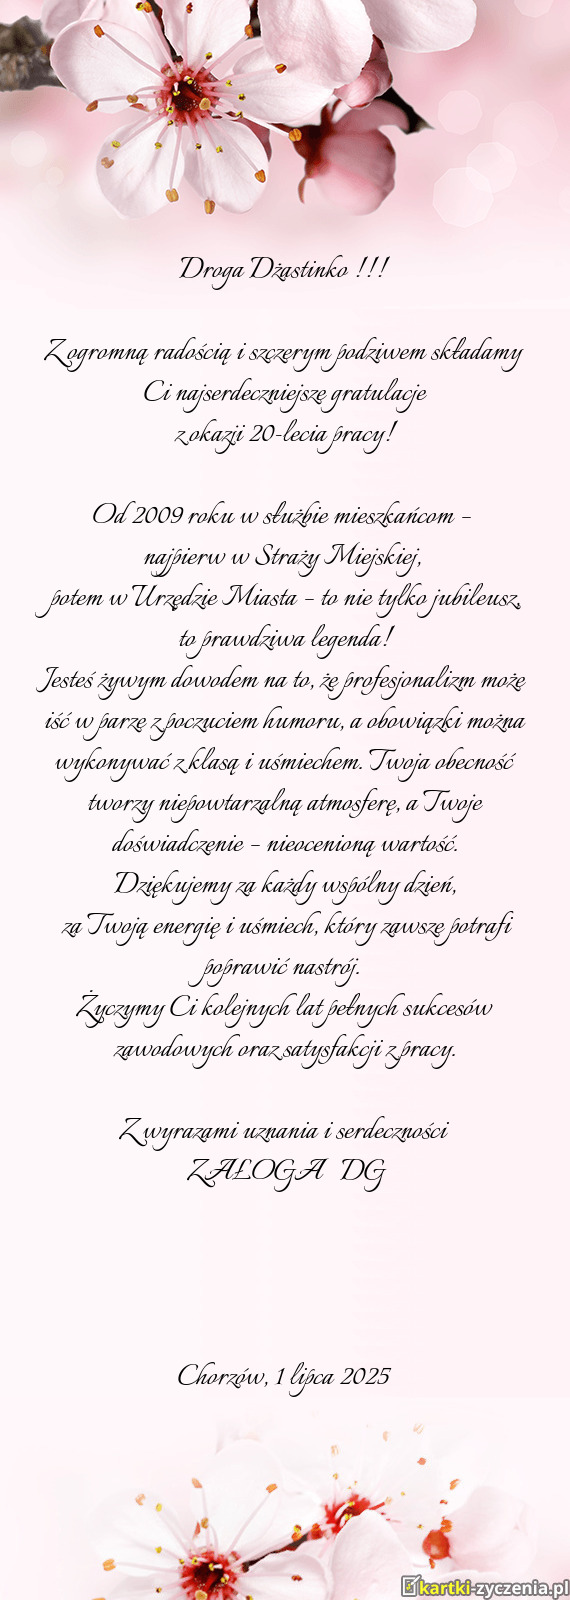 Droga Dżastinko !!!
Z ogromną radością i szczerym podziwem składamy
Ci najserdeczniejsze gratulacje
z okazji 20-lecia pracy!
Od 2009 roku w służbie mieszkańcom –
najpierw w Straży Miejskiej,
potem w Urzędzie Miasta – to nie tylko jubileusz,
to prawdziwa legenda!
Jesteś żywym dowodem na to, że profesjonalizm może
iść w parze z poczuciem humoru, a obowiązki można
wykonywać z klasą i uśmiechem. Twoja obecność
tworzy niepowtarzalną atmosferę, a Twoje
doświadczenie – nieocenioną wartość.
Dziękujemy za każdy wspólny dzień,
za Twoją energię i uśmiech, który zawsze potrafi
poprawić nastrój.
Życzymy Ci kolejnych lat pełnych sukcesów
zawodowych oraz satysfakcji z pracy.
Z wyrazami uznania i serdeczności
ZAŁOGA DG
Chorzów, 1 lipca 2025
kartki-zyczenia.pl